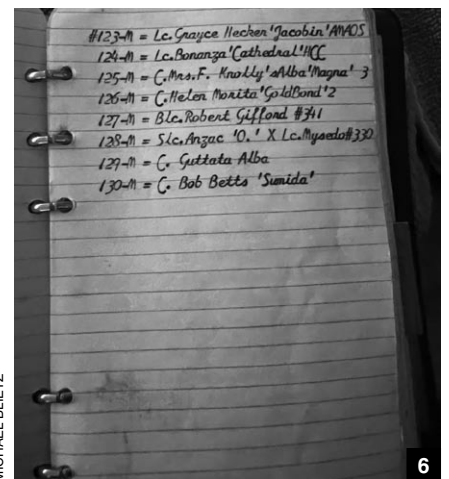 #123-M = Lc. Grayce Hecker 'Jacobin' AMAOS
124-M = Lc. Bonanza 'Cathedral' HCC
125-M = C. Mrs. F. Knolly'sAlba 'Magna' 3
126-M = C. Helen Morita 'GoldBond' 2
127-M = Blc. Robert Gifford #341
128-M = Slc. Anzac 'O.' X Lc. Mysedo #330
129-M = C. Guttata Alba
130-M = C. Bob Betts 'Sumida'
6